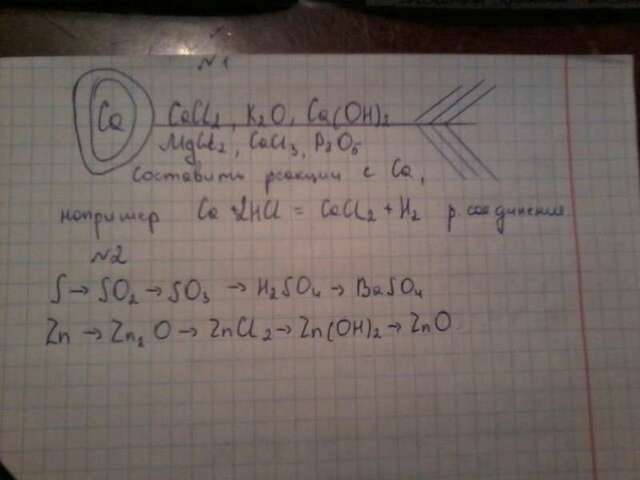 №1
Ca CaCl₂, K₂O, Ca(OH)₂
MgCl₂, CaCl₃, P₂O₅
Составить реакции с Ca,
например Ca + 2HCl = CaCl₂ + H₂ р. соединения
№2
S → SO₂ → SO₃ → H₂SO₄ → BaSO₄
Zn → Zn₂O → ZnCl₂ → Zn(OH)₂ → ZnO